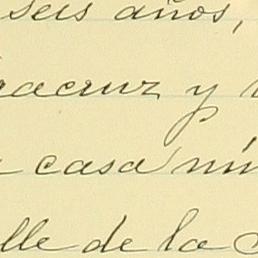 seis años,
racruz y
casa nú
lle de la